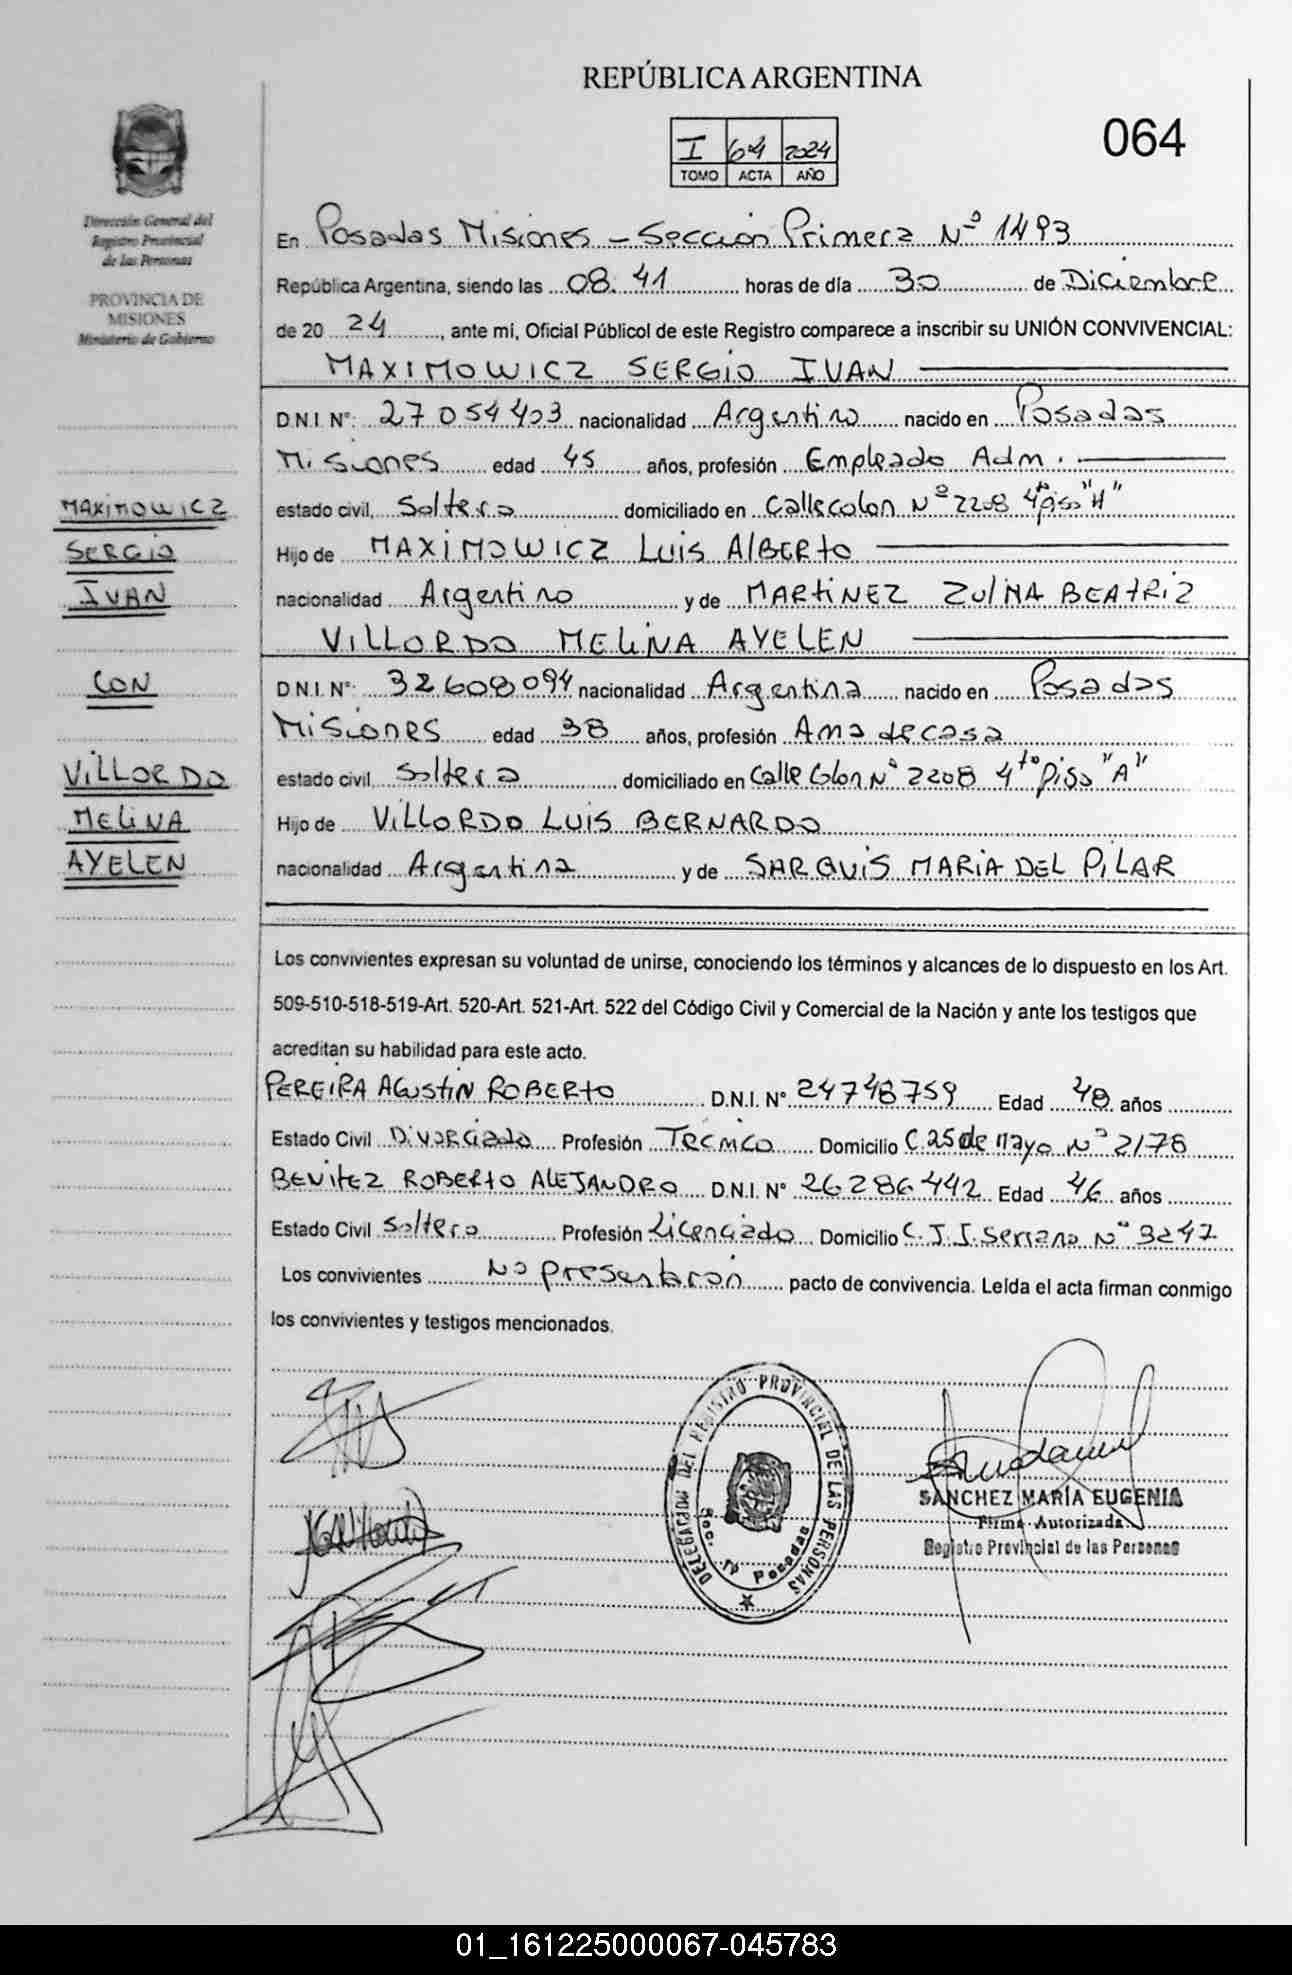 REPÚBLICA ARGENTINA
064
I 64 2024
TOMO ACTA AÑO
Dirección General del
Registro Provincial
de las Personas
PROVINCIA DE
MISIONES
Ministerio de Gobierno
En Posadas Misiones - Sección Primera Nº 1493
República Argentina, siendo las 08.41 horas de día 30 de Diciembre
de 20 24, ante mi, Oficial Públicol de este Registro comparece a inscribir su UNIÓN CONVIVENCIAL:
MAXIMOWICZ SERGIO IVAN
D.N.I. N°: 27 054 403 nacionalidad Argentino nacido en Posadas
Misiones edad 45 años, profesión Empleado Adm.
estado civil, Soltero domiciliado en Calle colon Nº 2208 4to piso "A"
Hijo de MAXIMOWICZ LUIS ALBERTO
nacionalidad Argentino y de MARTINEZ ZULMA BEATRIZ
VILLORDO MELINA AYELEN
D.N.I. N°: 32.608.094 nacionalidad Argentina nacido en Posadas
Misiones edad 38 años, profesión Ama de casa
estado civil, Soltera domiciliado en Calle Colon Nº 2208 4to Piso "A"
Hijo de VILLORDO LUIS BERNARDO
nacionalidad Argentina y de SARQUIS MARIA DEL PILAR
MAXIMOWICZ
SERGIO
IVAN
CON
VILLORDO
MELINA
AYELEN
Los convivientes expresan su voluntad de unirse, conociendo los términos y alcances de lo dispuesto en los Art.
509-510-518-519-Art. 520-Art. 521-Art. 522 del Código Civil y Comercial de la Nación y ante los testigos que
acreditan su habilidad para este acto.
PEREIRA AGUSTIN ROBERTO D.N.I. N° 24748759 Edad 48 años
Estado Civil Divorciado Profesión Tecnico Domicilio C. 25 de Mayo Nº 2178
BENITEZ ROBERTO ALEJANDRO D.N.I. N° 26286442 Edad 46 años
Estado Civil Soltero Profesión Licenciado Domicilio C. J.J. Serrano Nº 3247
Los convivientes No presentaron pacto de convivencia. Leída el acta firman conmigo
los convivientes y testigos mencionados.
DELEGACION DEL REGISTRO PROVINCIAL DE LAS PERSONAS
Sec. 1ª Posadas
SANCHEZ MARÍA EUGENIA
Firma Autorizada
Registro Provincial de las Personas
01_161225000067-045783